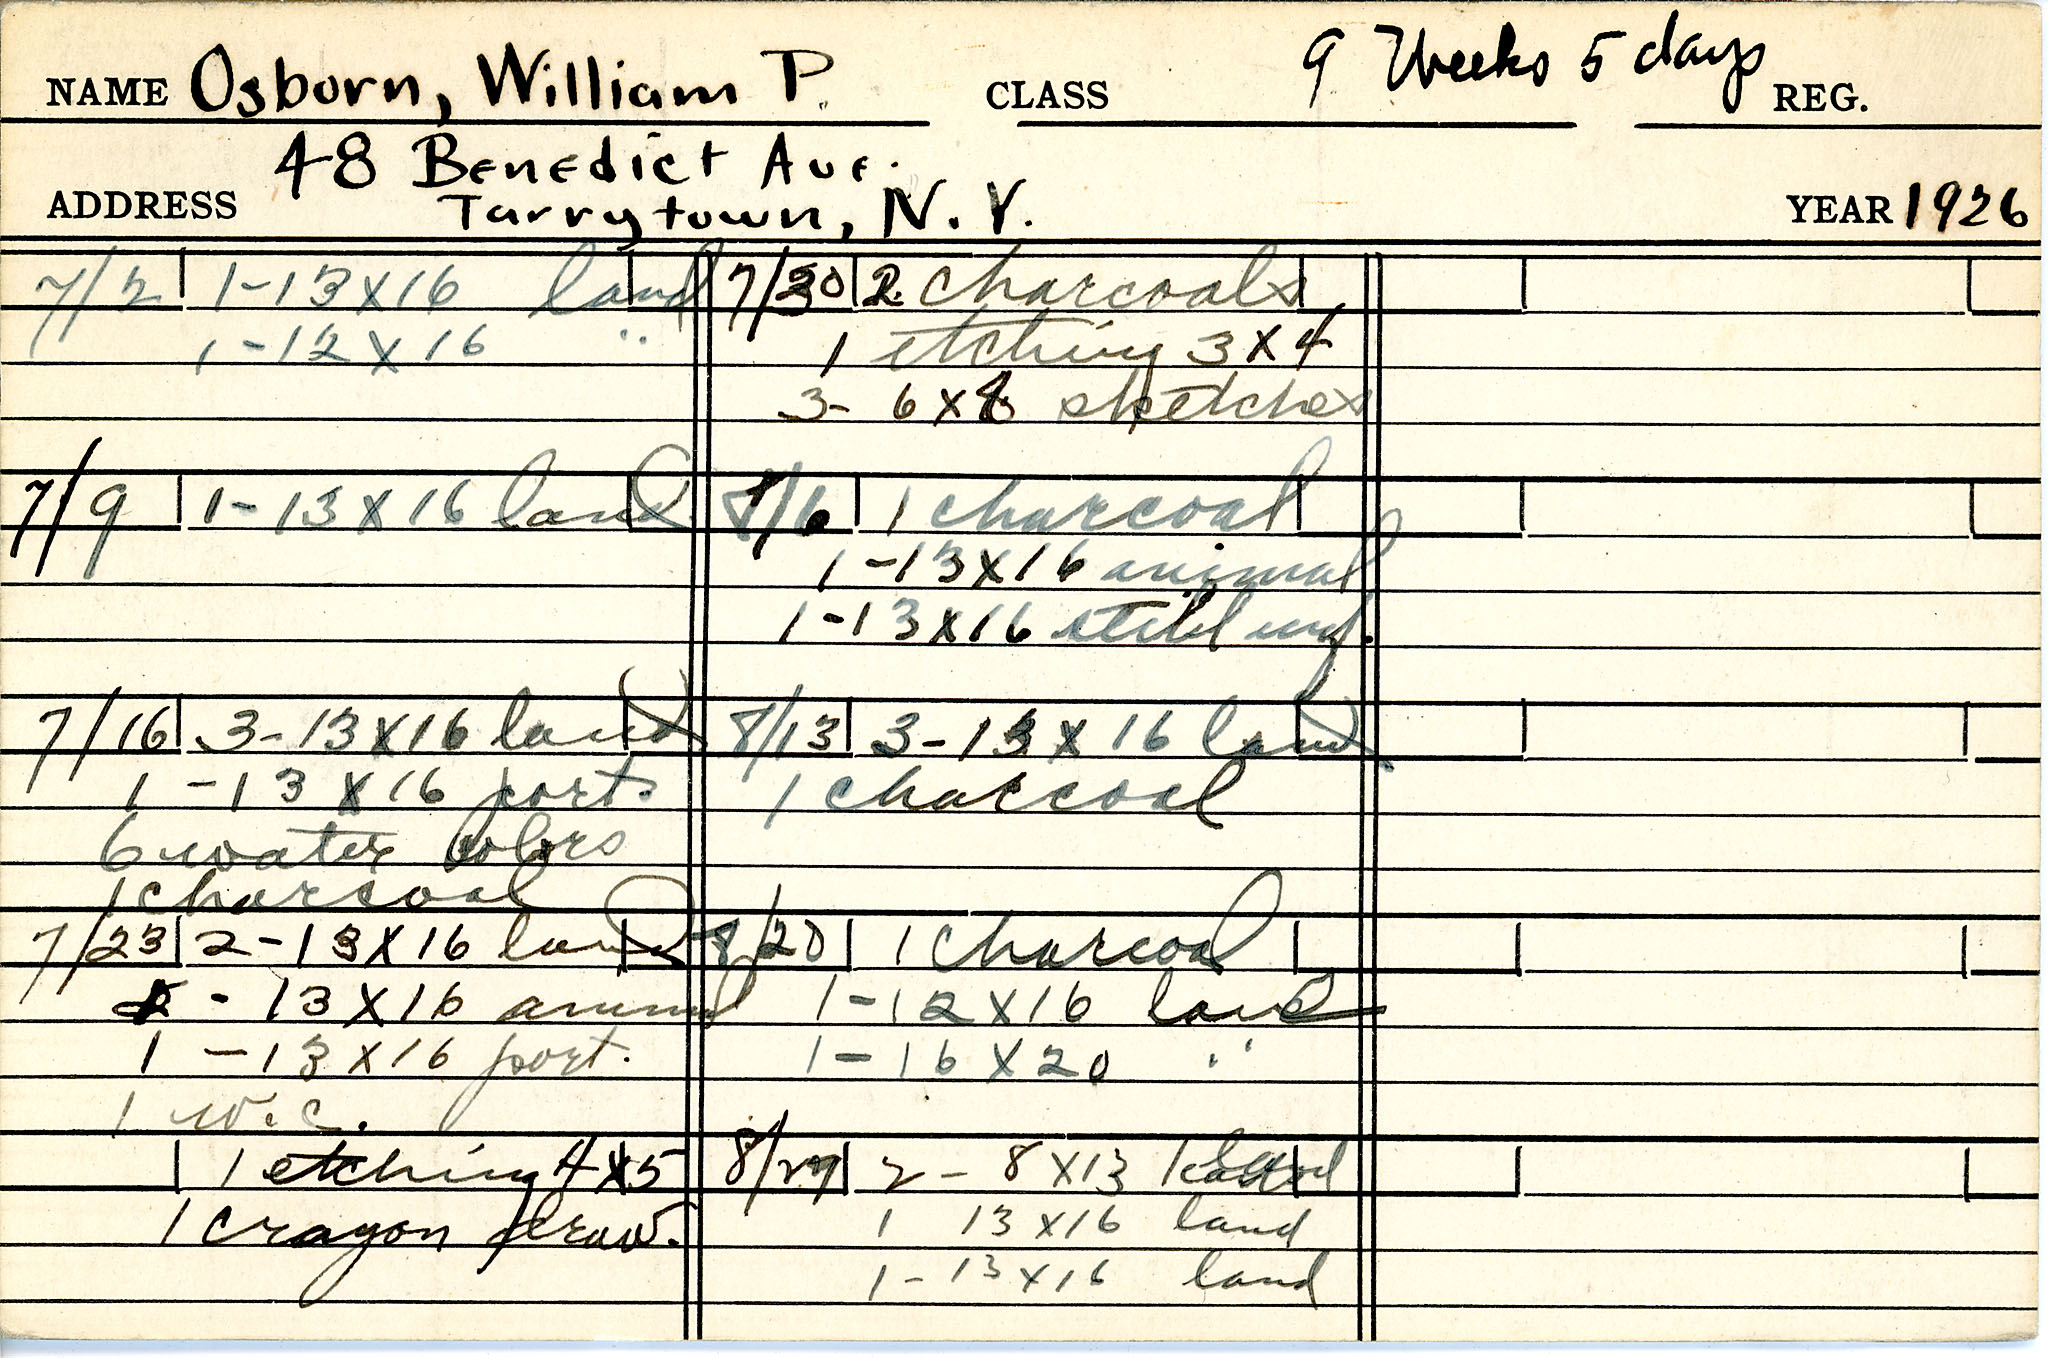 9 Weeks 5 days
NAME Osborn, William P. CLASS REG.
48 Benedict Ave.
ADDRESS Tarrytown, N.Y. YEAR 1926
7/2 1-13x16 land
1-12x16 "
7/9 1-13x16 land
7/16 3-13x16 land
1-13x16 port.
6 water colors
1 charcoal
7/23 2-13x16 land
2-13x16 animal
1-13x16 port.
1 w.c.
1 etching 4x5
1 crayon draw.
7/30 2 charcoals
1 etching 3x4
3- 6x8 sketches
8/6 1 charcoal
1-13x16 animal
1-13x16 still
8/13 3-13x16 land
1 charcoal
8/20 1 charcoal
1-12x16 land
1-16x20 "
8/27 2-8x13 land
1 13x16 land
1-13x16 land